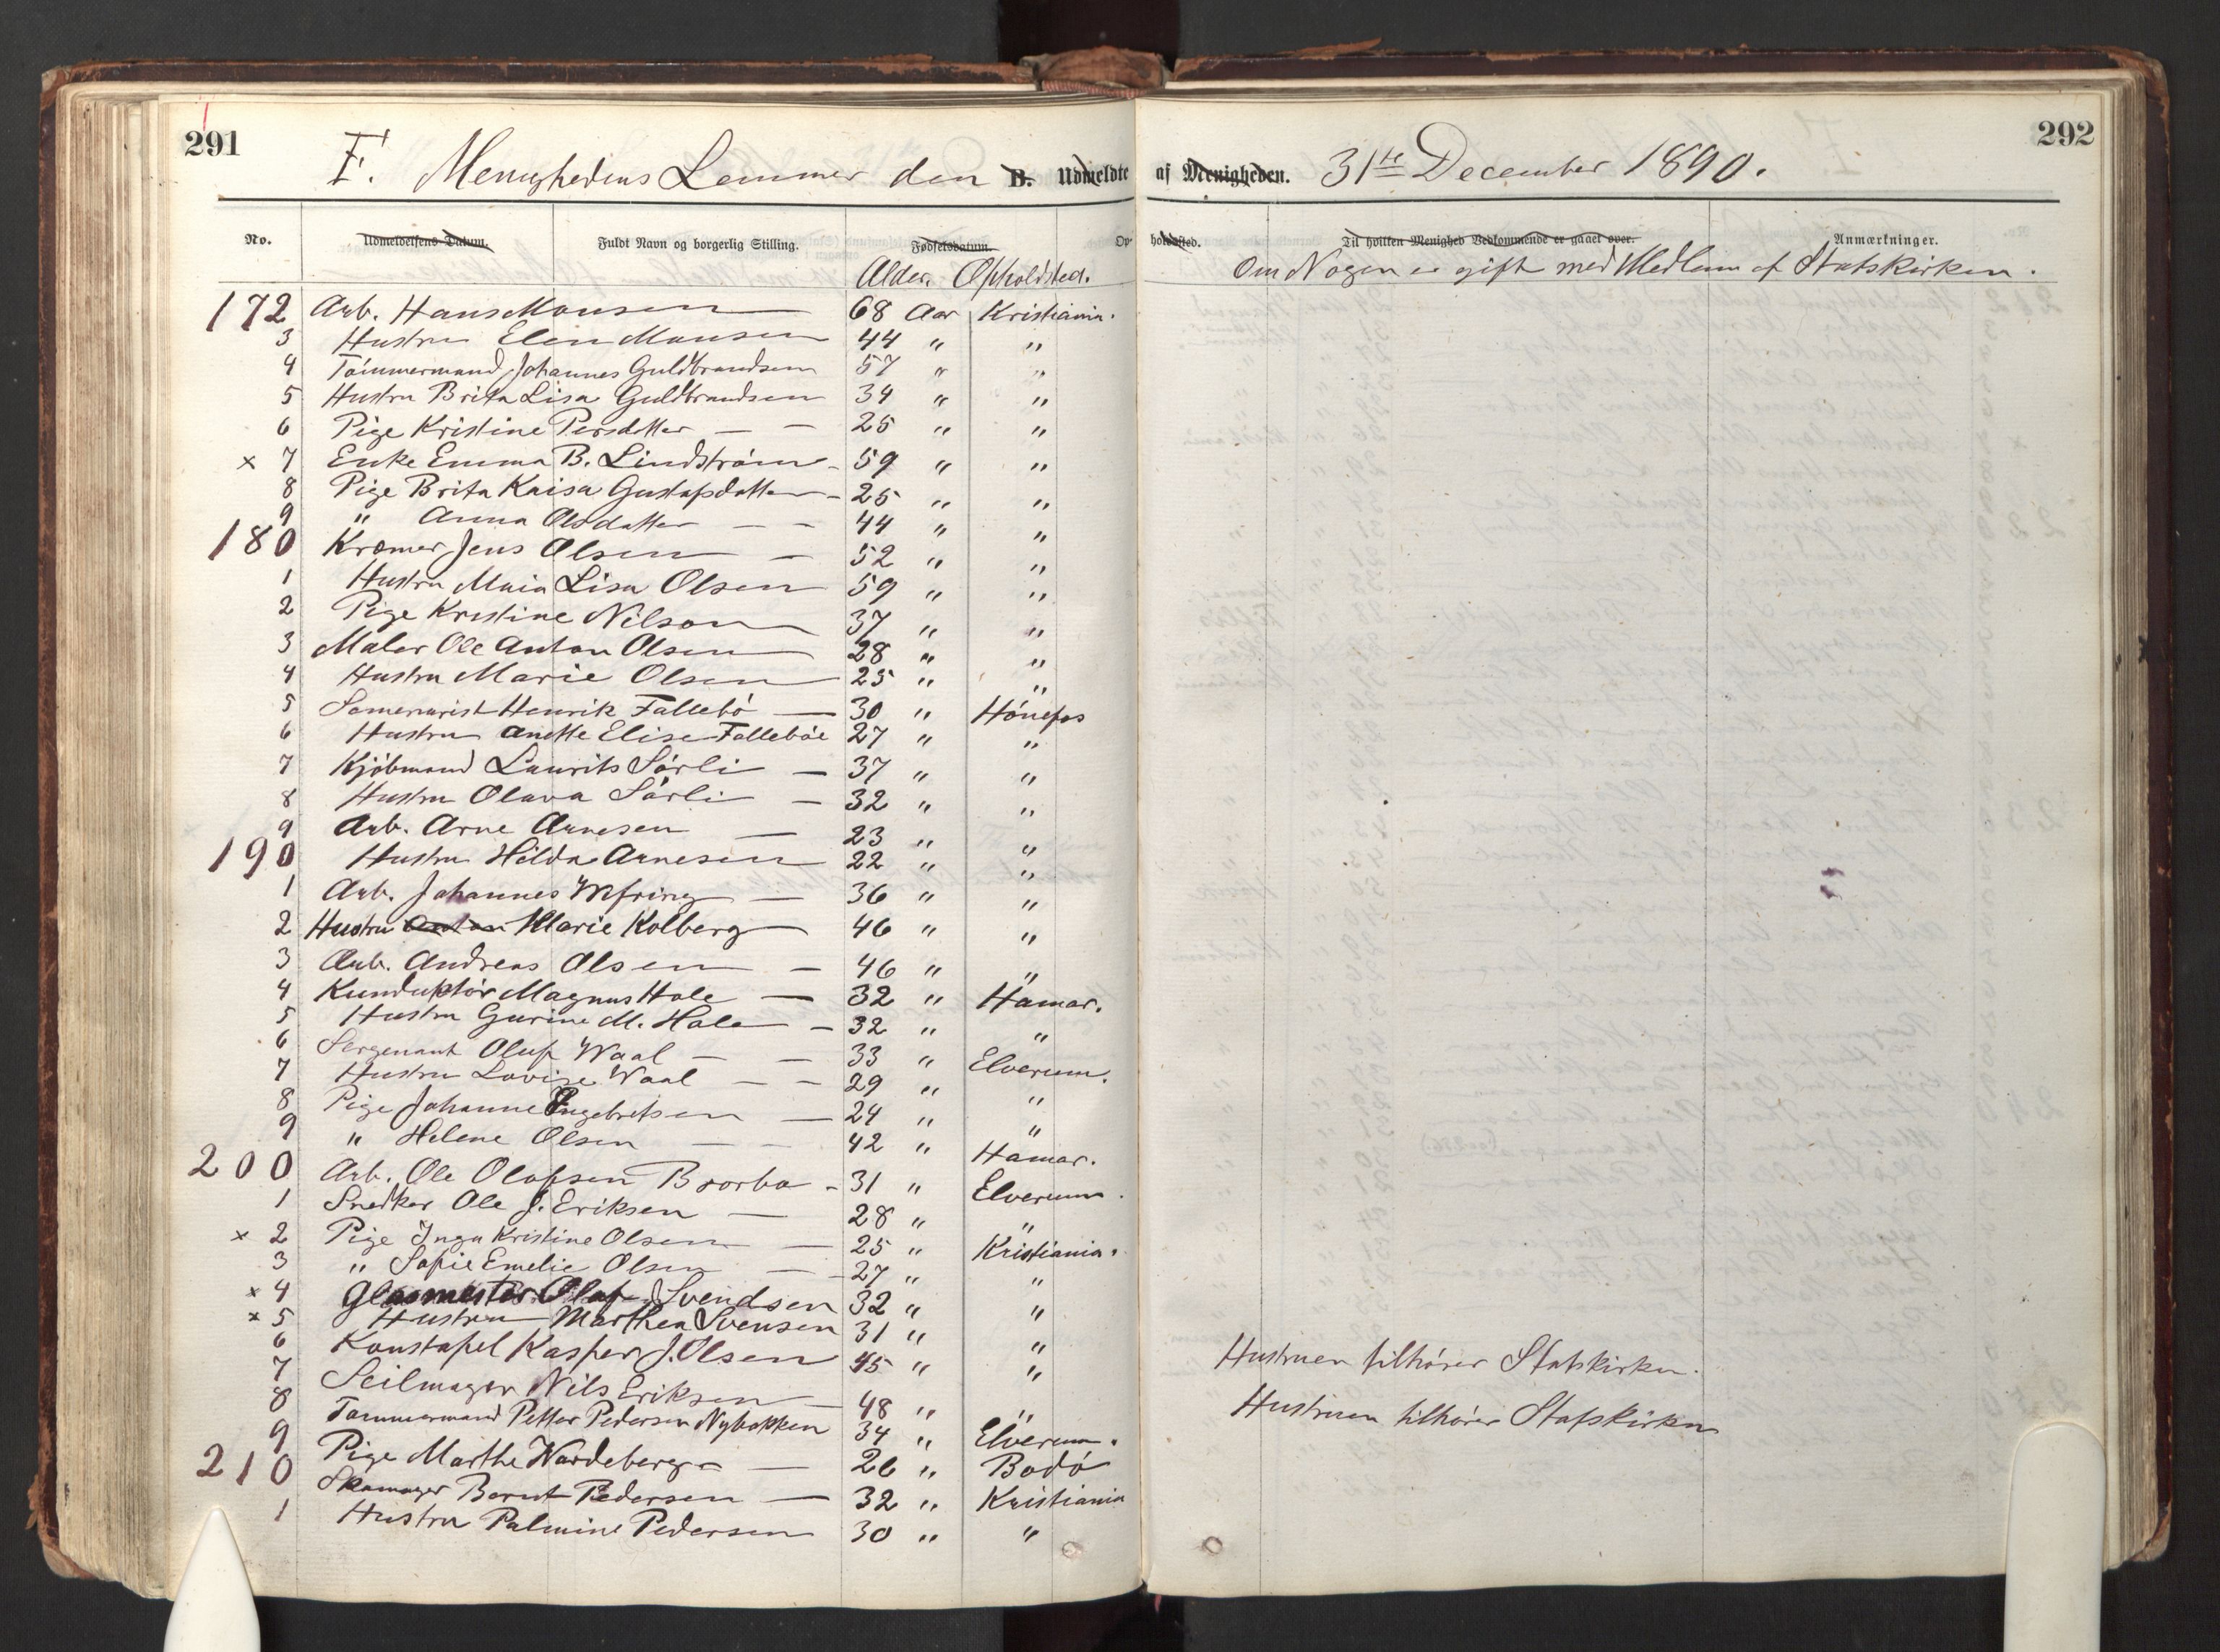 291
292
F. Menighedens Lemmer den B. Udmeldte af Menigheden. 31te December 1890.
No. Udmeldelsens Datum. Fuldt Navn og borgerlig Stilling. Fødselsdatum. Opholdssted. Til hvilken Menighed Vedkommende er gaaet over. Anmærkninger.
Alder. Opholdsted. Om Nogen er gift med Medlem af Statskirken.
172 Arb. Hans Monsen 68 Aar Kristiania.
3 Hustru Elen Monsen 44 " "
4 Tömmermand Johannes Guldbrandsen 57 " "
5 Hustru Brita Lisa Guldbrandsen 34 " "
6 Pige Kristine Persdatter — — 25 " "
x 7 Enke Emma B. Lindström - 59 " "
8 Pige Brita Kaisa Gustafsdatter - 25 " "
9 " Anna Olsdatter — — 44 " "
180 Kræmer Jens Olsen — 52 " "
1 Hustru Maia Lisa Olsen 59 " "
2 Pige Kristine Nilson 37 " "
3 Maler Ole Anton Olsen 28 " "
4 Hustru Marie Olsen 25 " "
5 Henrik Fallebö — 30 " Hönefos
6 Hustru Anette Elise Falleböe 27 " "
7 Kjöbmand Laurits Sörli — 37 " "
8 Hustru Olava Sörli — 32 " "
9 Arb. Arne Arnesen — 23 " "
190 Hustru Hilda Arnesen 22 " "
1 Arb. Johannes — 36 " "
2 Hustru Marie Kolberg 46 " "
3 Arb. Andreas Olsen — 46 " "
4 Kunduktör Magnus Hole — 32 " Hamar.
5 Hustru Gurine M. Hole - 32 " "
6 Sergenant Oluf Waal — — 33 " Elverum.
7 Hustru Lovise Waal — — 29 " "
8 Pige Johanne Engebretsen — 24 " "
9 " Helene Olsen — — 42 " Hamar.
200 Arb. Ole Olafsen - 31 " Elverum.
1 Snedker Ole J. Eriksen — 28 " "
x 2 Pige Inga Kristine Olsen — 25 " Kristiania.
3 " Sofie Emelie Olsen — 27 " "
x 4 Glasmester Olaf J Svendsen 32 " "
x 5 Hustru Marthea Svensen 31 " "
6 Konstapel Kasper J. Olsen 45 " " Hustruen tilhörer Statskirken.
7 Seilmager Nils Eriksen — 48 " " Hustruen tilhörer Statskirken
8 Tömmermand Petter Pedersen Nybakken 34 " Elverum.
9 Pige Marthe Wardeberg — 26 " Bodö
210 Skomager Bernt Pedersen — 32 " Kristiania
1 Hustru Palmine Pedersen 30 " "